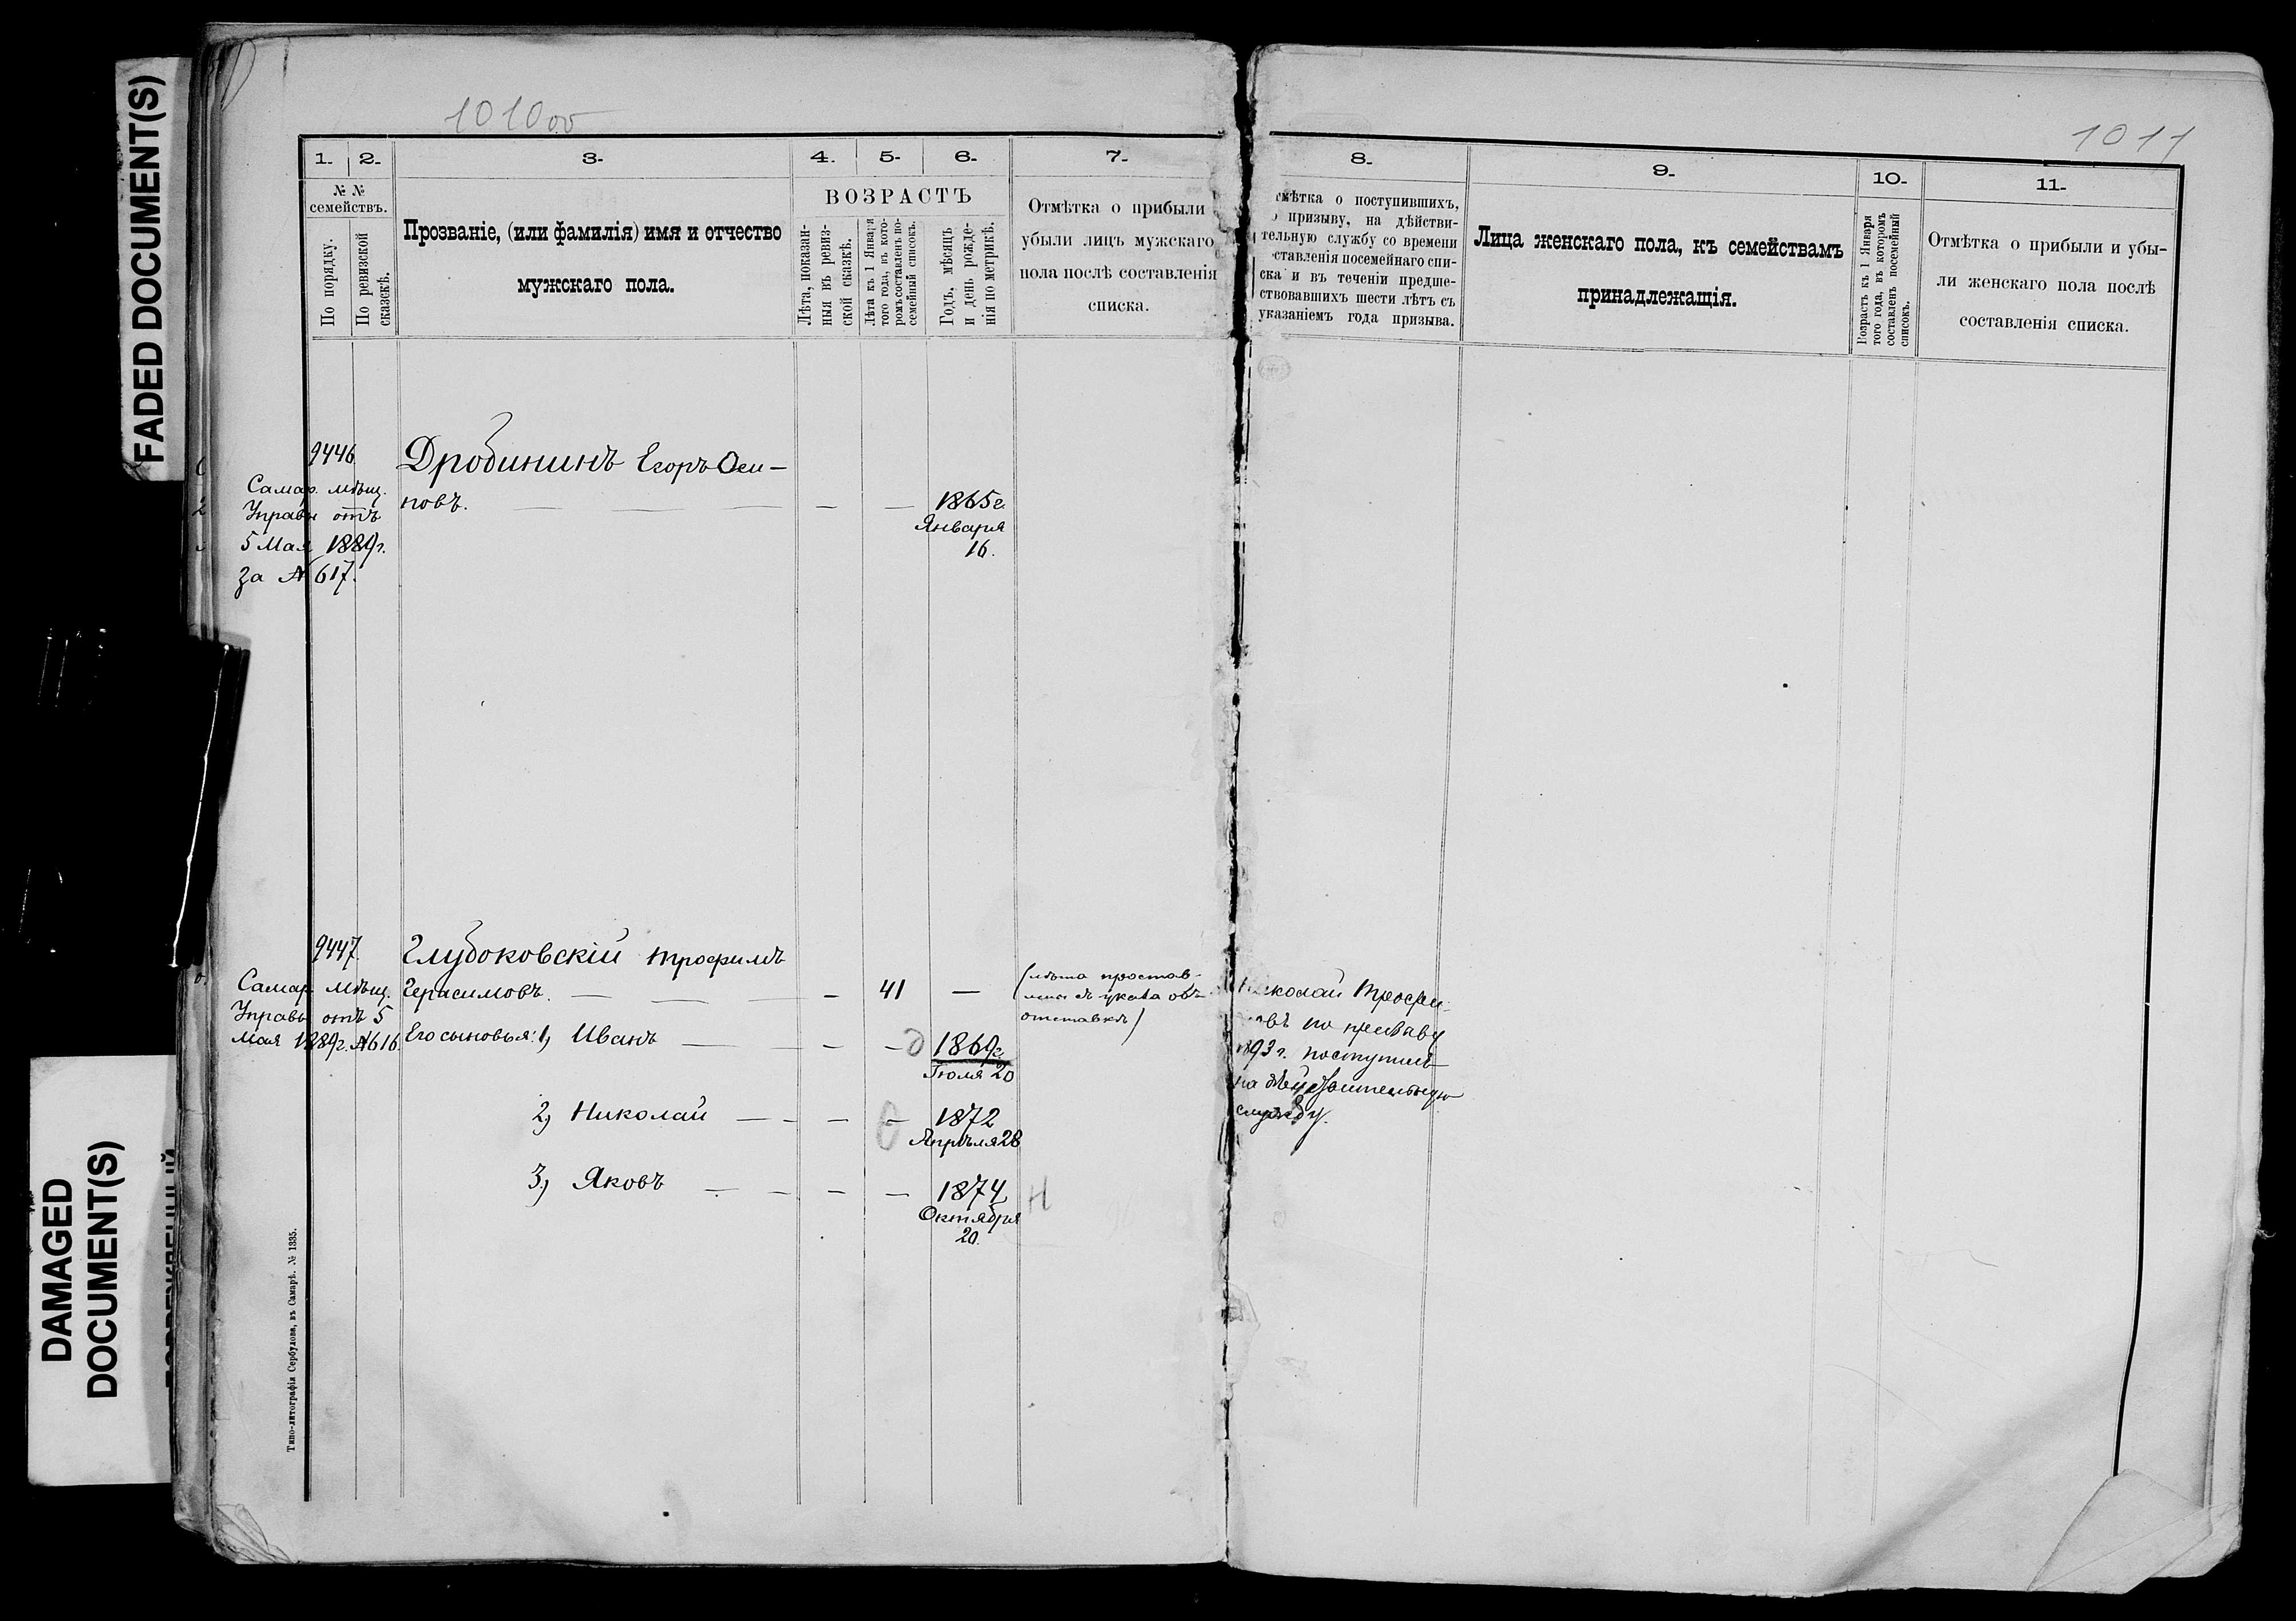 FADED DOCUMENT(S)
DAMAGED
DOCUMENT(S)
1010 об
1011
1.
2.
3.
4.
5.
6.
7.
№ №
семействъ.
По порядку.
По ревизской
сказкѣ.
Прозваніе, (или фамилія) имя и отчество
мужскаго пола.
ВОЗРАСТЪ
Лѣта, показан-
ныя въ ревиз-
ской сказкѣ.
Лѣта къ 1 Января
того года, въ кото-
ромъ составленъ по-
семейный списокъ.
Годъ, мѣсяцъ
и день рожде-
нія по метрикѣ.
Отмѣтка о прибыли
убыли лицъ мужскаго
пола послѣ составленія
списка.
8.
9.
10.
11.
о поступившихъ,
призыву, на дѣйстви-
тельную службу со времени
ставленія посемейнаго спи-
ска и въ теченіи предше-
ствовавшихъ шести лѣтъ съ
указаніемъ года призыва.
Лица женскаго пола, къ семействамъ
принадлежащія.
Возрастъ къ 1 Января
того года, въ которомъ
составленъ посемейный
списокъ.
Отмѣтка о прибыли и убы-
ли женскаго пола послѣ
составленія списка.
9446
Самар. мѣщ.
Управы отъ
5 Мая 1889г.
за № 617.
Дробининъ Егоръ Оси-
повъ.
1865г.
Января
16.
9447.
Самар. мѣщ.
Управы отъ 5
Мая 1889г. №616.
Глубоковскій Трофимъ
Герасимовъ. 41
(лѣта простав-
указа объ
отставкѣ)
Его сыновья: 1, Иванъ
1869г.
Іюля 20
2, Николай
1872
Апрѣля 28
3, Яковъ
1874
Октября
20.
Н
Николай Трофи-
въ по призыву
1893г. поступилъ
на дѣйствительную
службу.
Типо-литографія Сербулова, въ Самарѣ. № 1335.